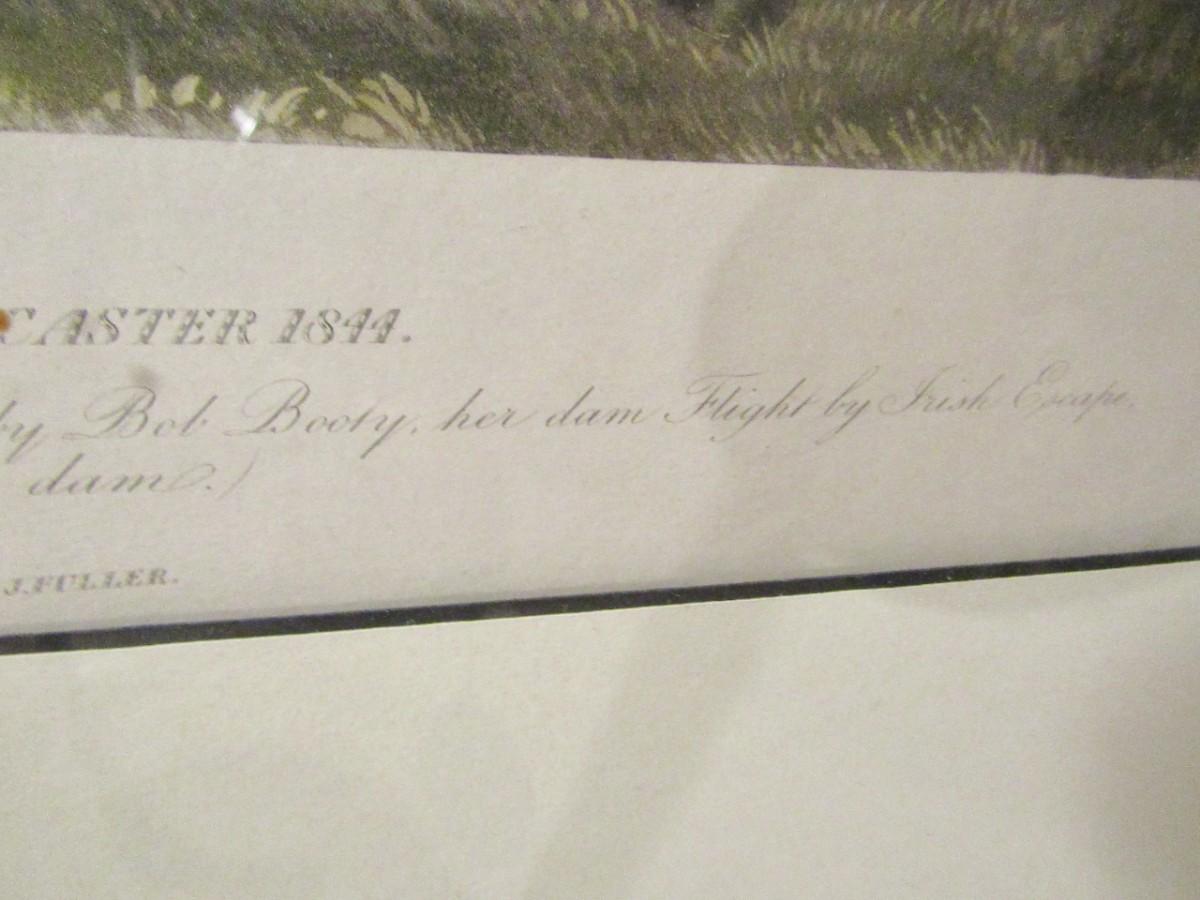 CASTER 1844.
by Bob Booty, her dam Flight by Irish Escape,
dam.)
J. FULLER.